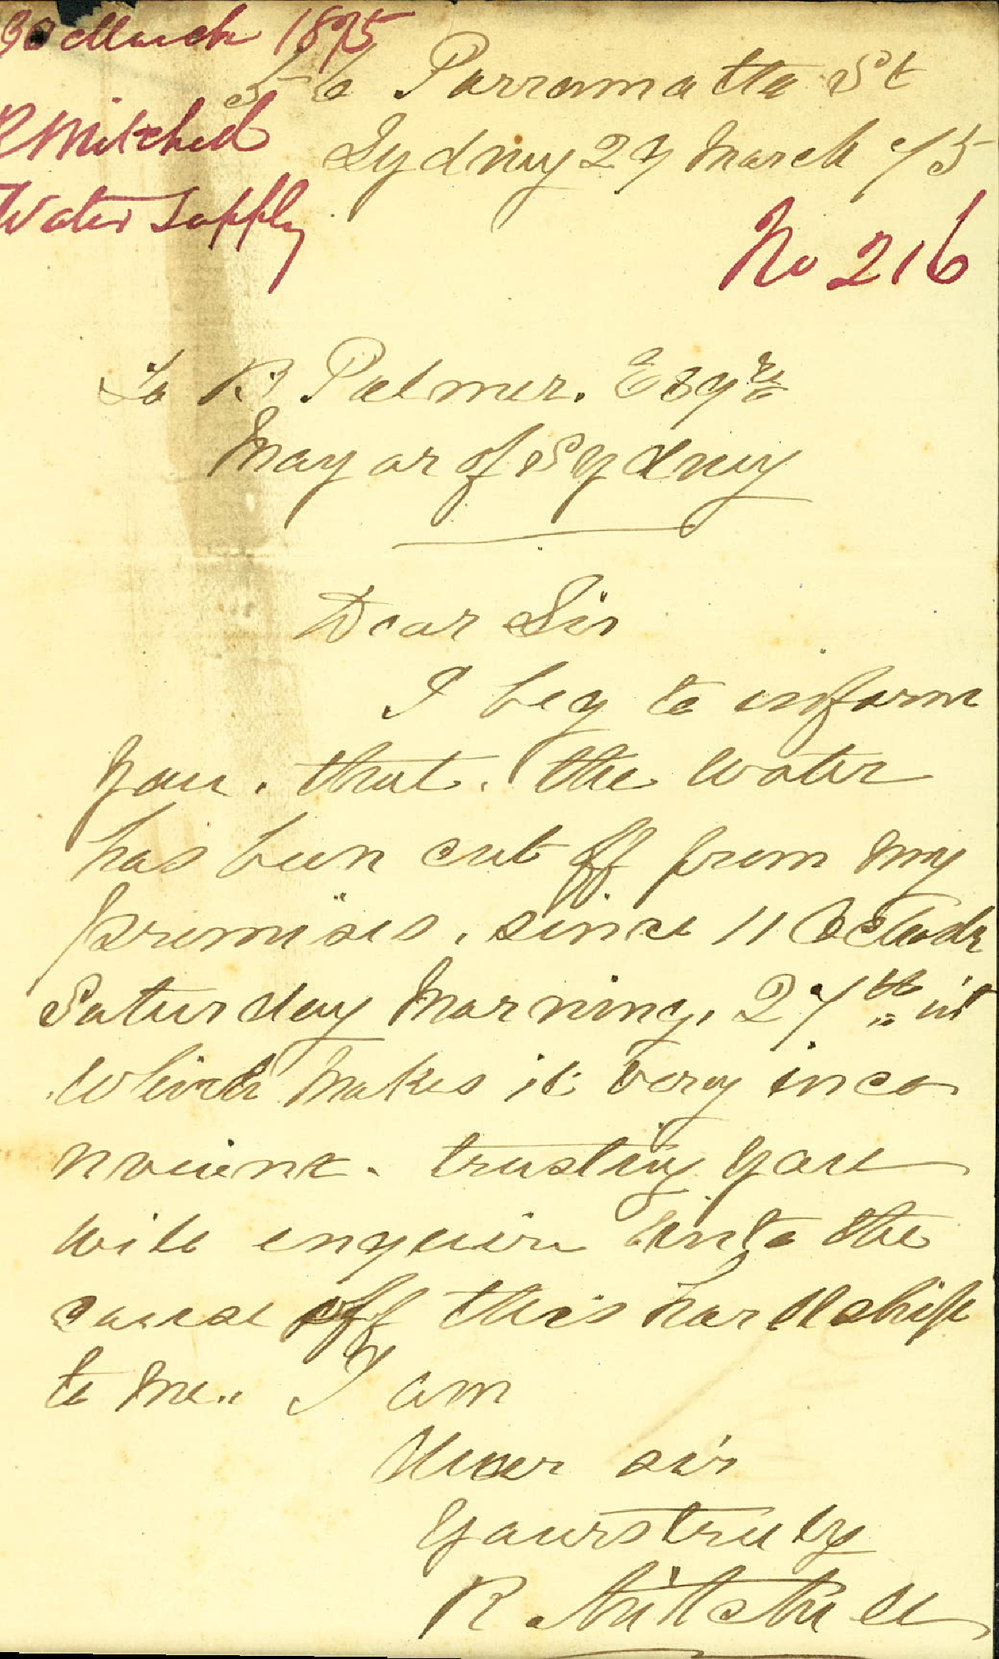 30 March 1875
R Mitchell
Water Supply
56 Parramatta St
Sydney 29 March /75
No 216
To B. Palmer. Esqre
Mayor of Sydney
Dear Sir
I beg to inform
you. that. the water
has been cut off from my
premises. since 11 Oclock
Saturday Morning. 27th int
Which makes it very inco
nveient. trusting you
will enquire into the
cause off this hardship
to me. I am
Dear sir
Yours truly
R. Mitchell